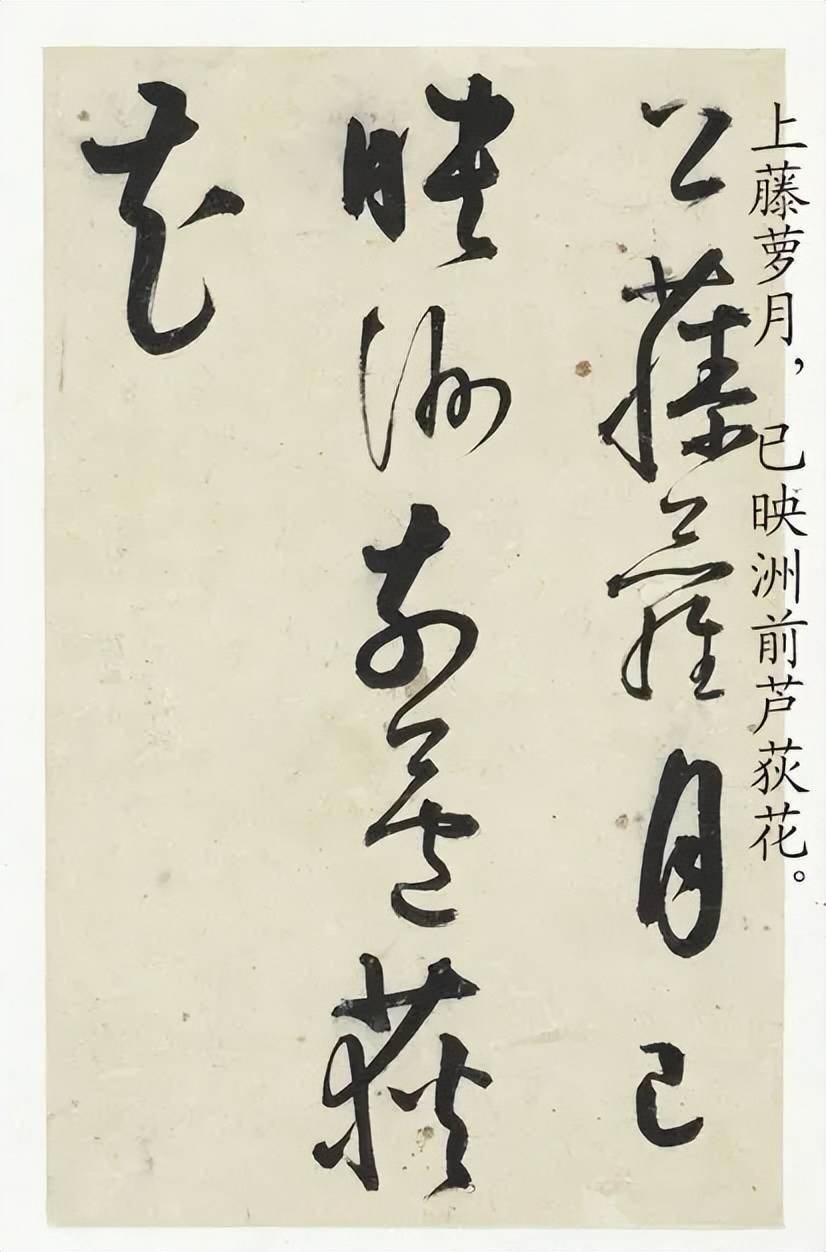 上藤萝月，已映洲前芦荻花。
上藤蘿月已
映洲前蘆荻
花